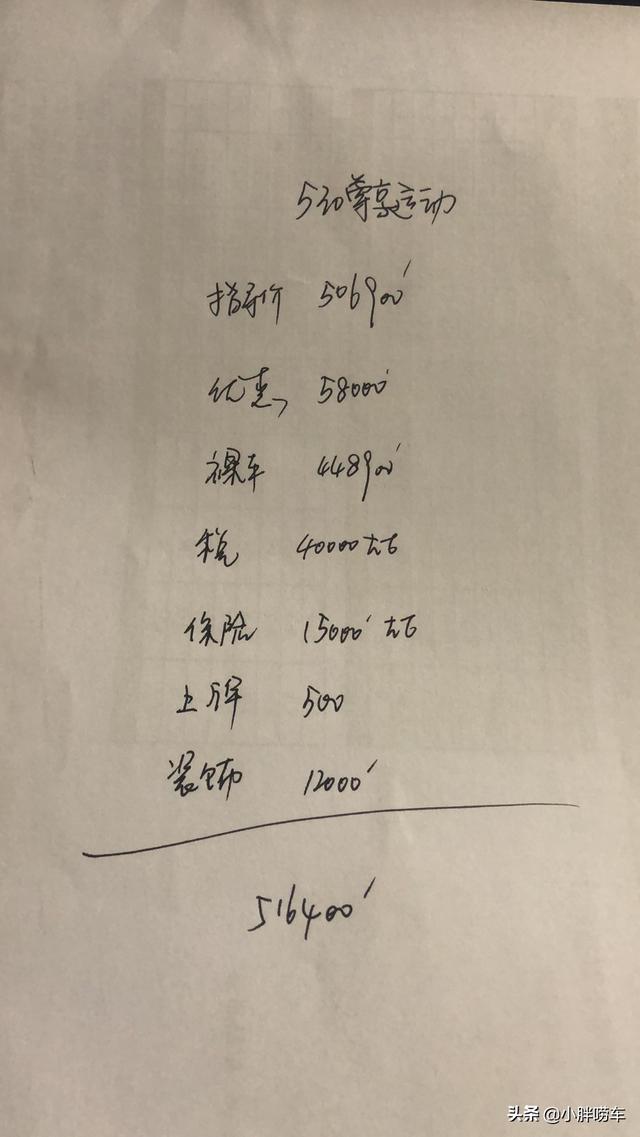 530尊享运动
指导价 506900
优惠 58000
裸车 448900
税 40000左右
保险 15000左右
上牌 500
装饰 12000
516400
头条 @小胖唠车